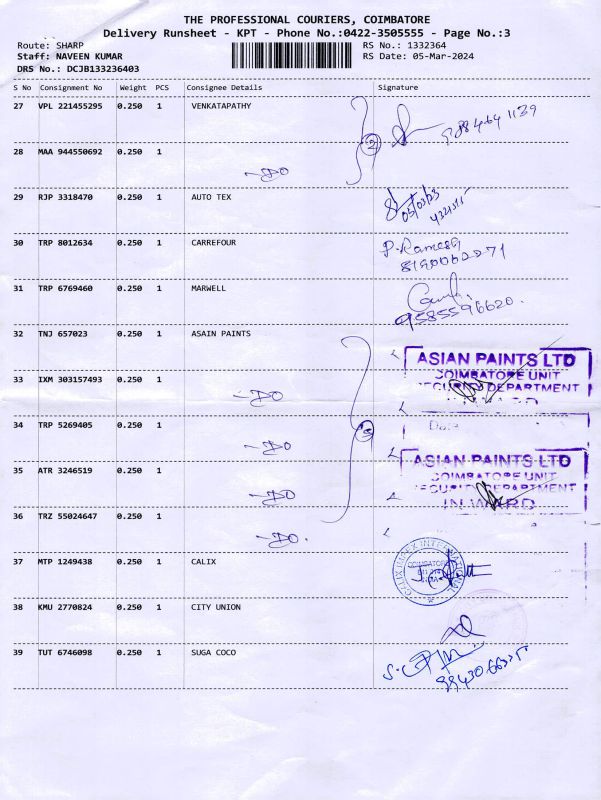 THE PROFESSIONAL COURIERS, COIMBATORE
Delivery Runsheet - KPT - Phone No.:0422-3505555 - Page No.:3
Route: SHARP RS No.: 1332364
Staff: NAVEEN KUMAR RS Date: 05-Mar-2024
DRS No.: DCJB133236403
S No Consignment No Weight PCS Consignee Details Signature
27 VPL 221455295 0.250 1 VENKATAPATHY
2
28 MAA 944550692 0.250 1
-DO
29 RJP 3318470 0.250 1 AUTO TEX
30 TRP 8012634 0.250 1 CARREFOUR P. Ramesh
31 TRP 6769460 0.250 1 MARWELL
9585596620.
32 TNJ 657023 0.250 1 ASAIN PAINTS
ASIAN PAINTS LTD
COIMBATORE UNIT
33 IXM 303157493 0.250 1 DEPARTMENT
-DO
34 TRP 5269405 0.250 1 Date
-DO
ASIAN PAINTS LTD
35 ATR 3246519 0.250 1 COIMBATORE UNIT
-DO INWARD
36 TRZ 55024647 0.250 1
-DO.
37 MTP 1249438 0.250 1 CALIX CALIX IMPEX INTERNATIONAL
38 KMU 2770824 0.250 1 CITY UNION
39 TUT 6746098 0.250 1 SUGA COCO